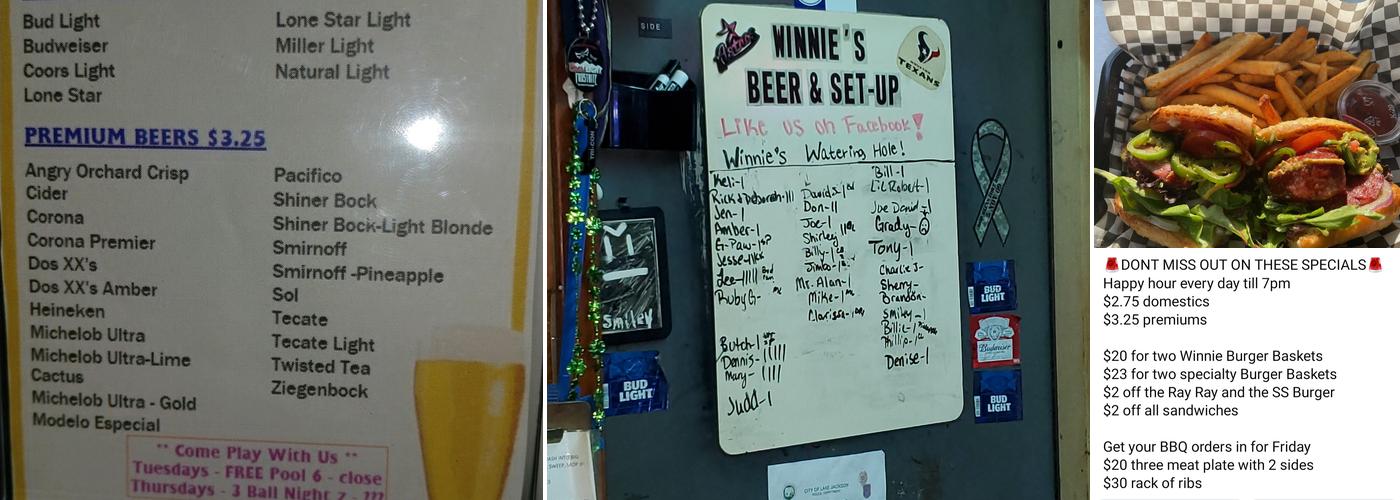 Bud Light
Budweiser
Coors Light
Lone Star
Lone Star Light
Miller Light
Natural Light
PREMIUM BEERS $3.25
Angry Orchard Crisp
Cider
Corona
Corona Premier
Dos XX's
Dos XX's Amber
Heineken
Michelob Ultra
Michelob Ultra-Lime
Cactus
Michelob Ultra - Gold
Modelo Especial
Pacifico
Shiner Bock
Shiner Bock-Light Blonde
Smirnoff
Smirnoff -Pineapple
Sol
Tecate
Tecate Light
Twisted Tea
Ziegenbock
** Come Play With Us **
Tuesdays - FREE Pool 6 - close
Thursdays - 3 Ball Night
SIDE
Astros
TEXANS
WINNIE'S
BEER & SET-UP
Like us on Facebook!
Winnie's Watering Hole!
Keli-1
Rick & Deborah-III
Jen-1
Amber-1
G-Paw-1
Jesse-
Lee-IIII
Ruby G-
Butch-1
Dennis-IIII
Mary-IIII
Judd-1
Davids-1
Don-II
Joe-1
Shirley
Billy-1
Jimbo-1
Mr. Alan-1
Mike-1
Clarissa-1
Bill-1
Lil Robert-1
Joe David-1
Grady-
Tony-1
Charlie J-
Sherry-
Brandon-
Smiley-1
Billie-1
Phillip-1
Denise-1
Smiley
BUD
LIGHT
BUD
LIGHT
Budweiser
BUD
LIGHT
CITY OF LAKE JACKSON
DONT MISS OUT ON THESE SPECIALS
Happy hour every day till 7pm
$2.75 domestics
$3.25 premiums
$20 for two Winnie Burger Baskets
$23 for two specialty Burger Baskets
$2 off the Ray Ray and the SS Burger
$2 off all sandwiches
Get your BBQ orders in for Friday
$20 three meat plate with 2 sides
$30 rack of ribs